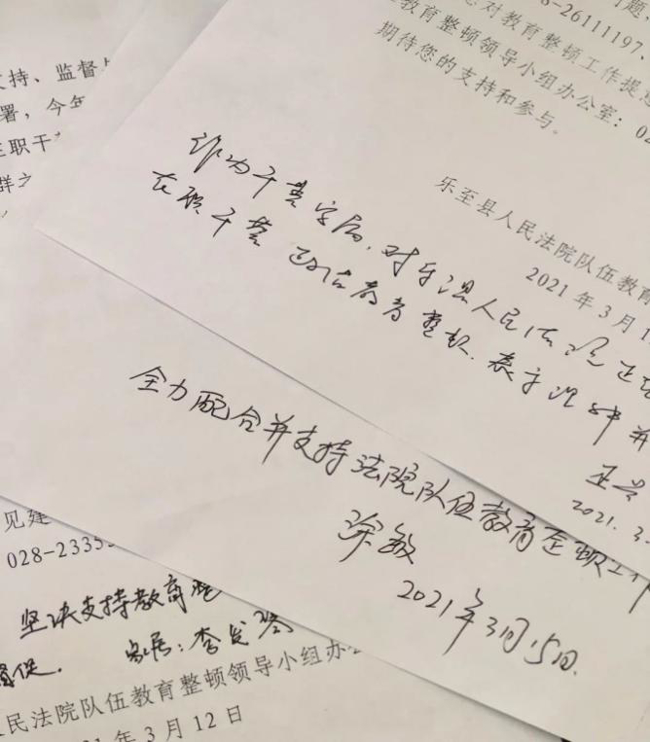 支持、监督
署，今年
在职干
群之
题、
8-26111197、
对教育整顿工作提意
教育整顿领导小组办公室：02
期待您的支持和参与。
乐至县人民法院队伍教育
2021 年 3 月 1
作为干警家属，对于县人民法院正在
在职干警 政法教育整顿，表示 并
2021.3.
全力配合并支持法院队伍教育整顿工作
涂敏
2021年3月15日.
见建
028-2335
坚决支持教育整
督促. 家属：李
民法院队伍教育整顿领导小组办公
21 年 3 月 12 日